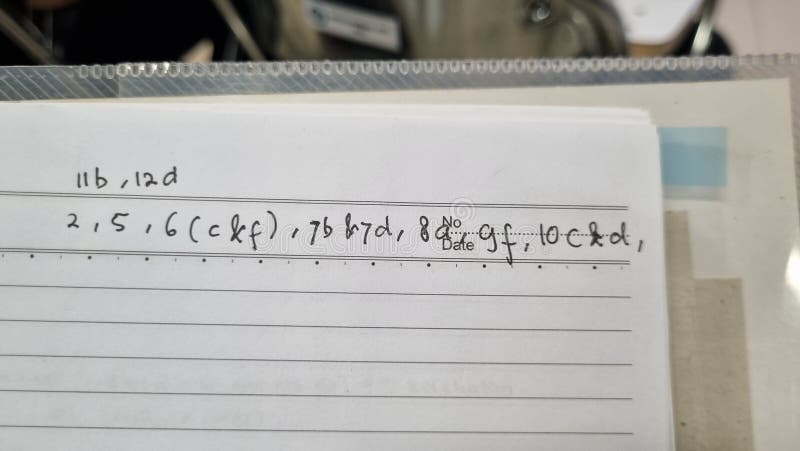 11b, 12d
2, 5, 6(c&f), 7b&7d, 8a, 9f, 10c&d,
No
Date